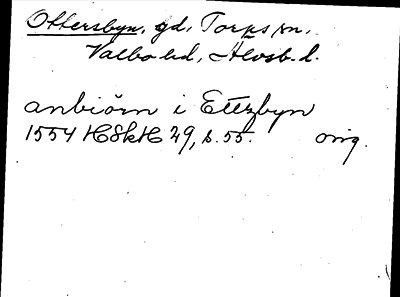 Ottersbyn, gd, Torps sn,
Valbo hd, Älvsb. l.
anbiörn i Ettzbyn
1554 HSkH 29, s. 55. orig.